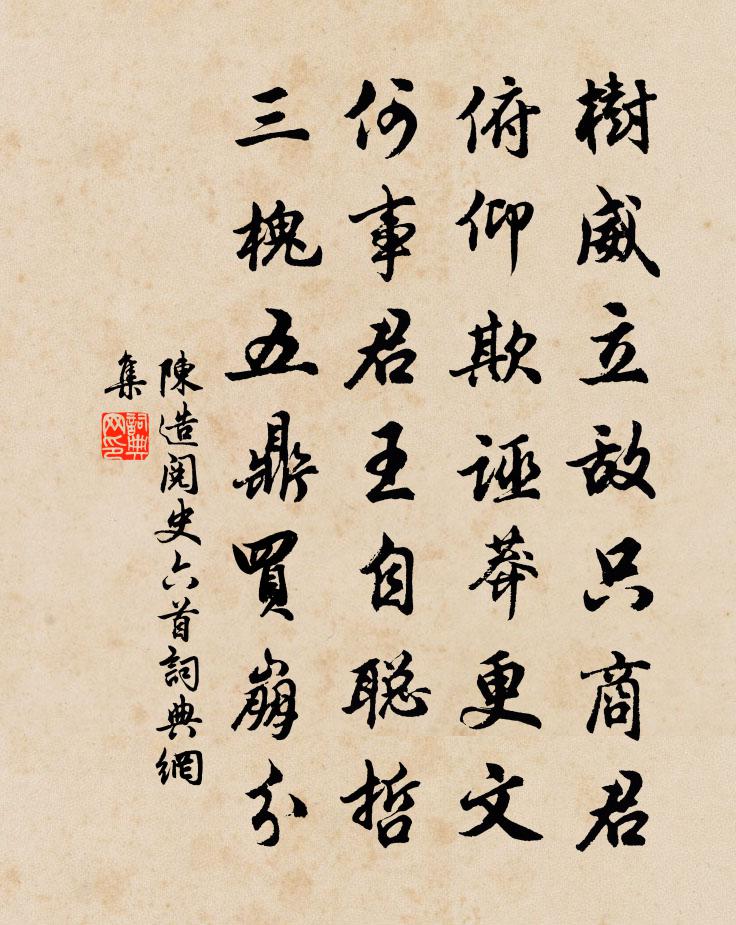 樹威立敌只商君
俯仰欺誣莽更文
何事君王自聪哲
三槐五鼎買崩分
陳造閱史六首詞典網
集
詞典
网印